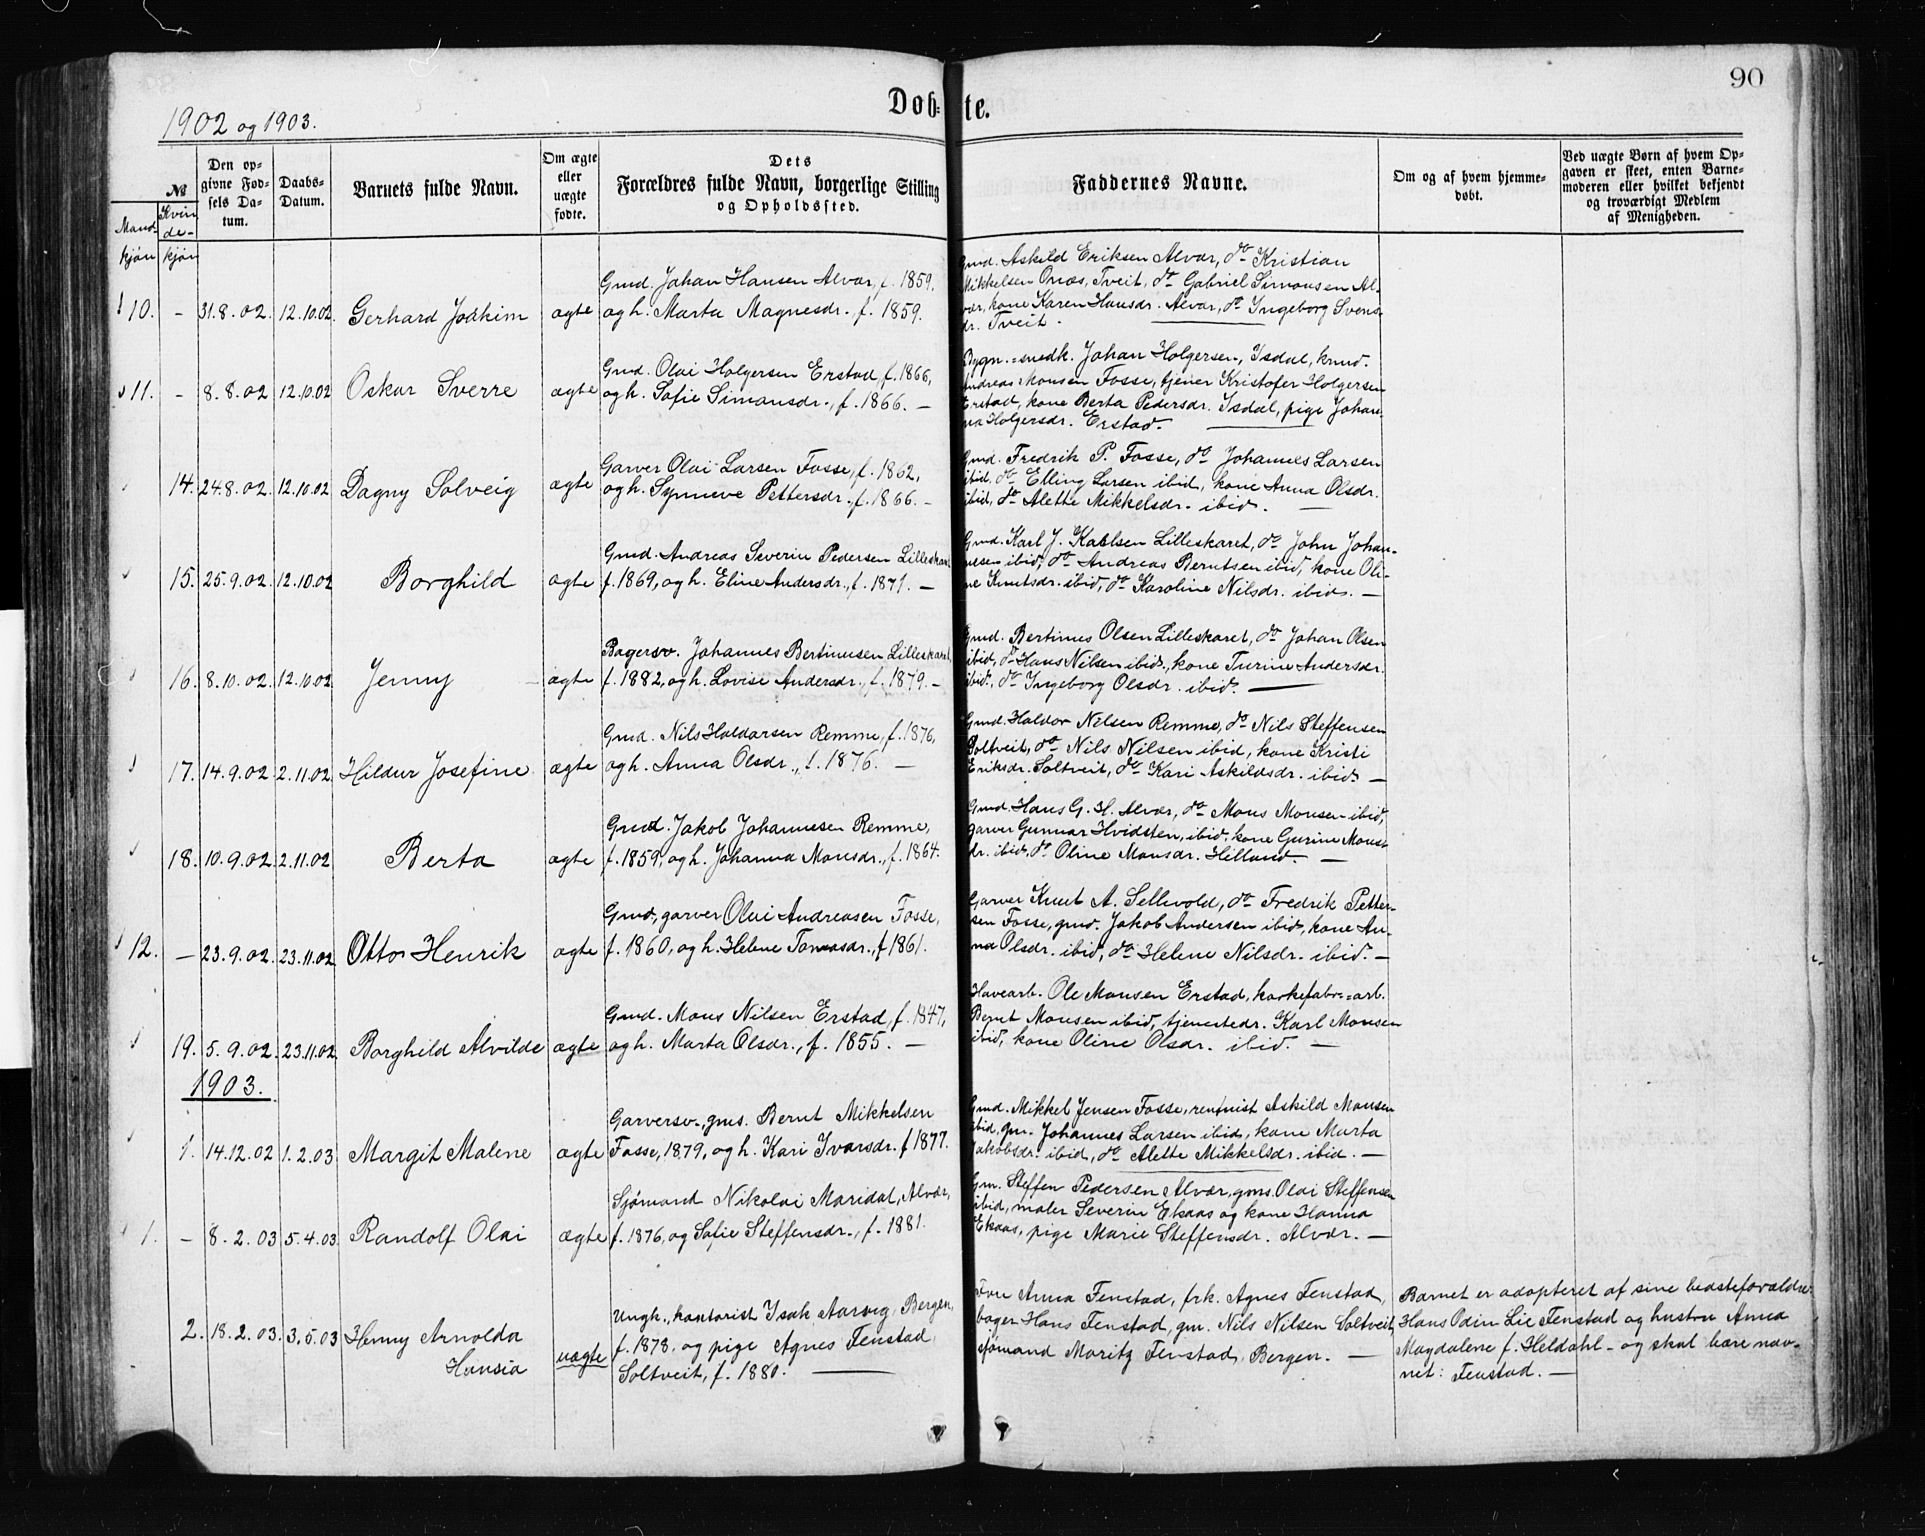 90
Døb=te.
1902 og 1903.
№
Mand-
kjøn
Kvin
de-
kjøn
Den op-
givne Fød-
sels Da-
tum.
Daabs-
Datum.
Barnets fulde Navn.
Om ægte
eller
uægte
fødte.
Dets
Forældres fulde Navn, borgerlige Stilling
og Opholdssted.
Faddernes Navne.
Om og af hvem hjemme-
døbt.
Ved uægte Børn af hvem Op-
gaven er skeet, enten Barne-
moderen eller hvilket bekjendt
og troværdigt Medlem
af Menigheden.
10. - 31.8.02. 12.10.02. Gerhard Joakim ægte
Gmd. Johan Hansen Alvær, f. 1859.
og h. Marta Magnesdr., f. 1859.
Gmd. Askild Eriksen Alvær, do Kristian
Mikkelsen Onæs, Tveit, do Gabriel Simonsen Al-
vær, kone Karen Hansdr. Alvær, do Ingeborg Svens-
dr. Tveit.
11. - 8.8.02 12.10.02 Oskar Sverre ægte
Gmd. Olai Holgersen Erstad, f. 1866,
og h. Sofie Simonsdr., f. 1866. —
Bygn.=snedk. Johan Holgersen, Isdal, kmd.
Andreas Monsen Fosse, tjener Kristofer Holgersen
Erstad, kone Berta Pedersdr. Isdal, pige Johan-
na Holgersdr. Erstad.
14. 24.8.02. 12.10.02 Dagny Solveig ægte
Garver Olai Larsen Fosse, f. 1862,
og h. Synneve Pettersdr., f. 1866. -
Gmd. Fredrik P. Fosse, do Johannes Larsen
ibid, do Elling Larsen ibid, kone Anna Olsdr.
ibid, do Alette Mikkelsdr. ibid. —
15. 25.9.02. 12.10.02 Borghild ægte
Gmd. Andreas Severin Pedersen Lilleskaret
f. 1869, og h. Eline Andersdr., f. 1871. —
Gmd. Karl J. Karlsen Lilleskaret, do John Johan-
nesen ibid, do Andreas Berntsen ibid, kone Oli-
ne Knutsdr. ibid, do Karoline Nilsdr. ibid. —
16. 8.10.02. 12.10.02 Jenny ægte
Bagersv. Johannes Bertinusen Lilleskaret,
f. 1882, og h. Lovise Andersdr., f. 1879. -
Gmd. Bertinus Olsen Lilleskaret, do Johan Olsen
ibid, do Hans Nilsen ibid., kone Turine Andersdr.
ibid., do Ingeborg Olsdr. ibid. —
17. 14.9.02 2.11.02 Hildur Josefine ægte
Gmd. Nils Haldorsen Remme, f. 1876,
og h. Anna Olsdr., f. 1876. —
Gmd. Haldor Nilsen Remme, do Nils Steffensen
Soltveit, do Nils Nilsen ibid, kone Kristi
Eriksdr. Soltveit, do Kari Askildsdr. ibid. —
18. 10.9.02 2.11.02 Berta ægte
Gmd. Jakob Johannesen Remme,
f. 1859, og h. Johanna Monsdr., f. 1864.
Gmd. Hans G. H. Alvær, do Mons Monsen ibid,
garver Gunnar Hvidsten, ibid, kone Gurine Mons-
dr. ibid, do Oline Monsdr. Hilland. —
12. — 23.9.02. 23.11.02 Otto Henrik ægte
Gmd., garver Olai Andreasen Fosse,
f. 1860, og h. Helene Tomasdr., f 1861.
Garver Knut A. Sellevold, do Fredrik Petter-
sen Fosse, gmd. Jakob Andersen ibid, kone An-
na Olsdr. ibid, do Helene Nilsdr. ibid. —
19. 5.9.02. 23.11.02. Borghild Alvilde ægte
Gmd. Mons Nilsen Erstad, f. 1847,
og h. Marta Olsdr., f. 1855. —
Havearb. Ole Monsen Erstad, korkefabr.=arb.
Bernt Monsen ibid, tjenestedr. Karl Monsen
ibid, kone Oline Olsdr. ibid. —
1903.
1. 14.12.02 1.2.03 Margit Malene ægte
Garversv., gms. Bernt Mikkelsen
Fosse, 1879, og h. Kari Ivarsdr. f 1877.
Gmd. Mikkel Jensen Fosse, Askild Monsen
ibid, gm. Johannes Larsen ibid, kone Marta
Jakobsdr. ibid, do Alette Mikkelsdr. ibid. —
1. - 8.2.03 5.4.03 Randolf Olai ægte
Sjømand Nikolai Maridal, Alvær,
f. 1876, og Sofie Steffensdr., f. 1881.
Gm. Steffen Pedersen Alvær, gms. Olai Steffensen
ibid, maler Severin Ekaas og kone Hanna
Ekaas, pige Marie Steffensdr. Alvær. —
2. 18.2.03. 3.5.03 Henny Arnolda
Hansia
uægte
Ungk., kontorist Isak Aarvig, Bergen,
f. 1878, og pige Agnes Fenstad,
Soltveit, f. 1880. —
Fru Anna Fenstad, frk. Agnes Fenstad,
bager Hans Fenstad, gm. Nils Nilsen Soltveit,
sjømand Moritz Fenstad, Bergen. —
Barnet er adopteret af sine bedsteforældre
Hans Odin Lie Fenstad og hustru Anna
Magdalene f. Heldahl - og skal bære nav-
net: Fenstad. —